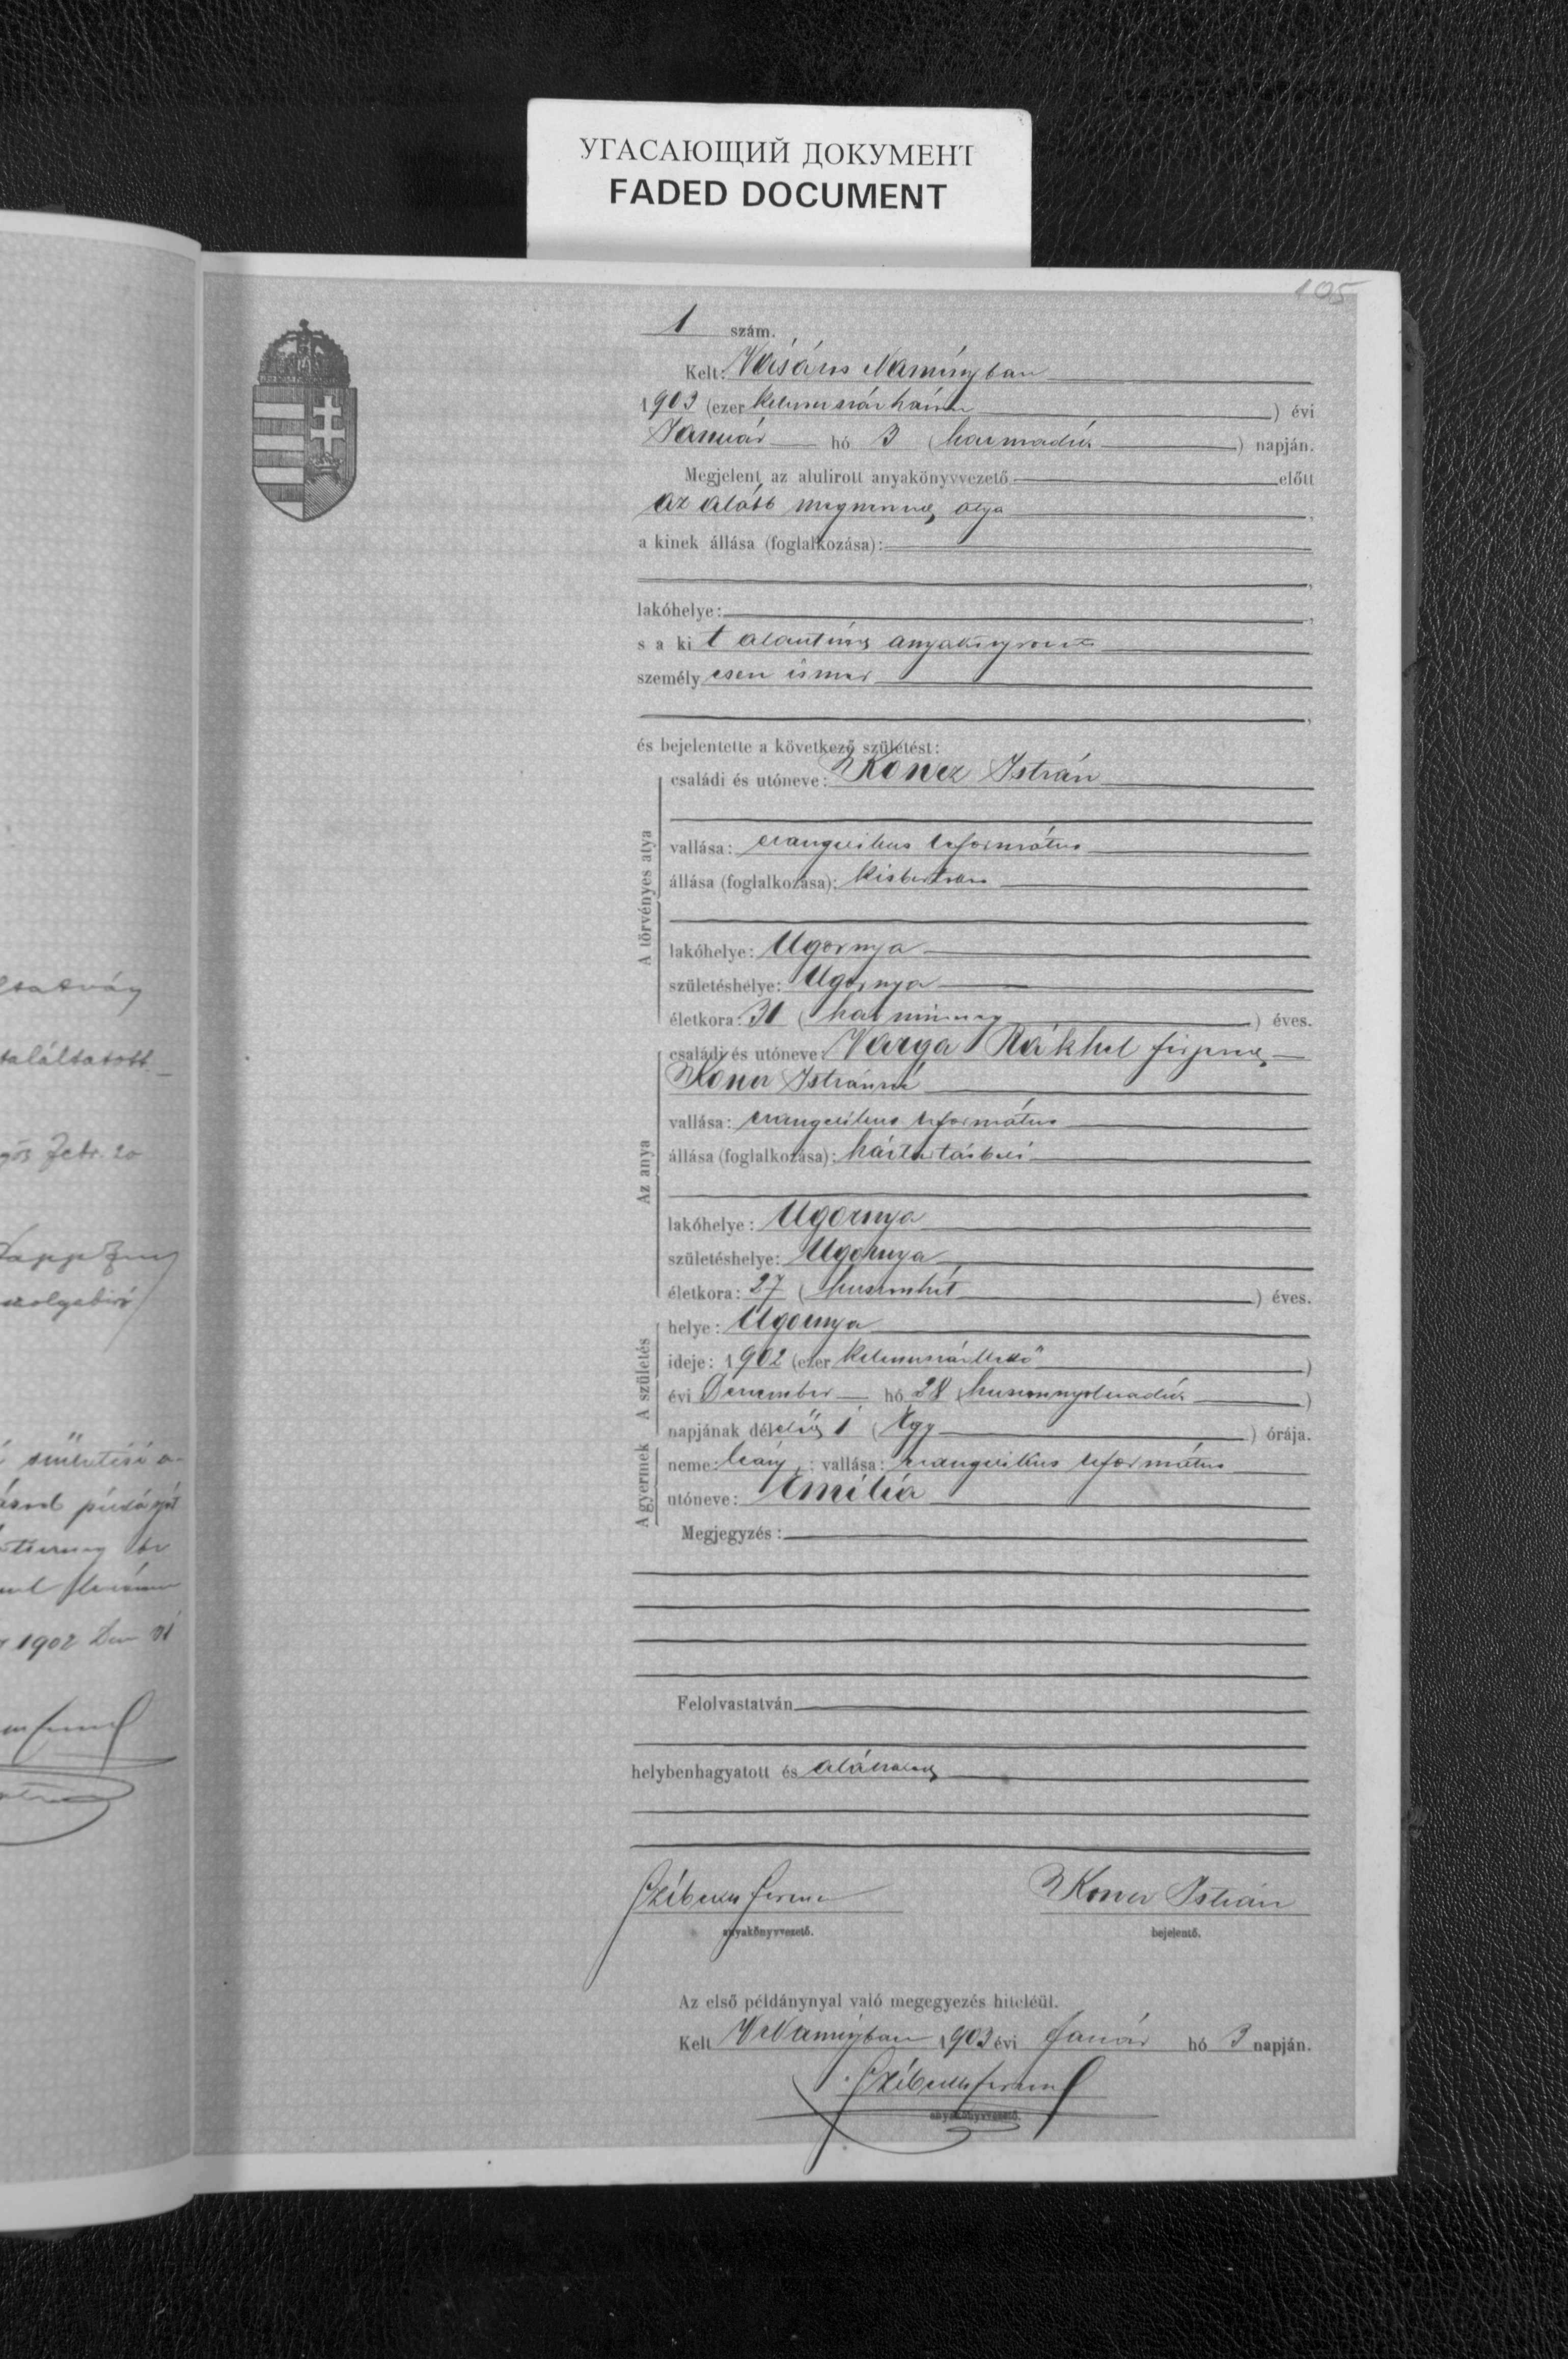 УГАСАЮЩИЙ ДОКУМЕНТ
FADED DOCUMENT
105
1 szám.
Kelt: Vásáros Naményban
1903 (ezer kilencszázhárom) évi
Január hó 3 (harmadik) napján.
Megjelent az alulirott anyakönyvvezető előtt
az alább megnevezett atya,
a kinek állása (foglalkozása):
lakóhelye:
s a kit alantirt anyakönyvvezető
személyesen ismer
és bejelentette a következő születést:
A törvényes atya
családi és utóneve: Koncz István
vallása: evangelikus református
állása (foglalkozása): kisbirtokos
lakóhelye: Ugornya
születéshelye: Ugornya
életkora: 31 (harmincegy) éves.
Az anya
családi és utóneve: Varga Rákhel férjezett
Koncz Istvánné
vallása: evangelikus református
állása (foglalkozása): háztartásbeli
lakóhelye: Ugornya
születéshelye: Ugornya
életkora: 27 (huszonhét) éves.
A születés
helye: Ugornya
ideje: 1902 (ezer kilencszázkettő)
évi December hó 28 (huszonnyolcadik)
napjának délelőtt 1 (egy) órája.
A gyermek
neme: leány; vallása: evangelikus református
utóneve: Emilia
Megjegyzés:
Felolvastatván
helybenhagyatott és aláiratott
Ferenc Koncz István
anyakönyvvezető. bejelentő.
Az első példánynyal való megegyezés hiteléül.
Kelt V Naményban 1903 évi Január hó 3 napján.
Ferenc
anyakönyvvezető.
találtatott
Febr. 20
szolgabiró
1902 Dec 31